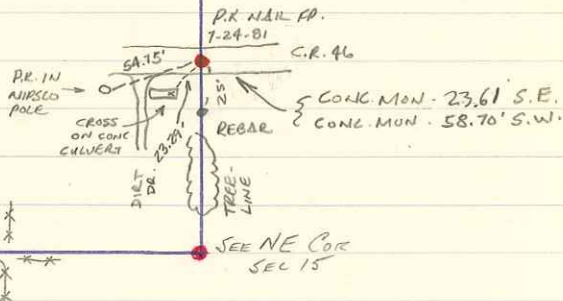 P.K NAIL FD.
7-24-81
C.R. 46
54.75'
P.K. IN
NIPSCO
POLE
CROSS
ON CONC
CULVERT
23.29'
25'
REBAR
CONC. MON. - 23.61' S.E.
CONC. MON. - 58.70' S.W.
DIRT
DR.
TREE-
LINE
SEE NE COR
SEC 15